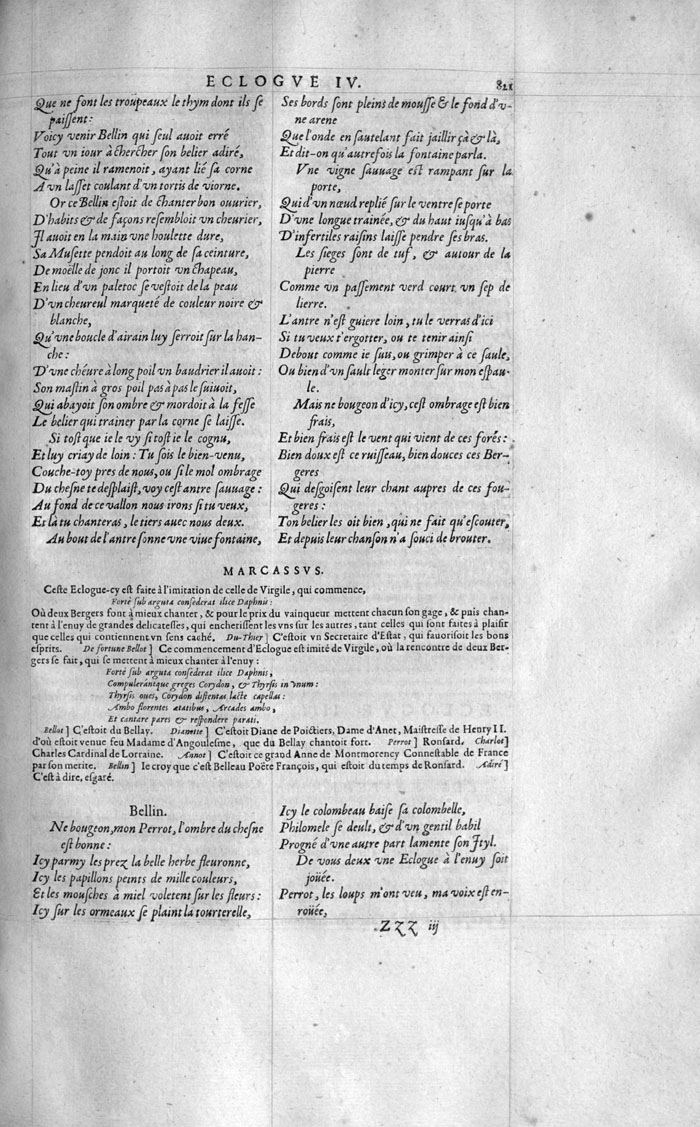 ECLOGVE IV.
821
Que ne font les troupeaux le thym dont ils se
paissent:
Voicy venir Bellin qui seul auoit erré
Tout vn iour à chercher son belier adiré,
Qu'à peine il ramenoit, ayant lié sa corne
A vn lasset coulant d'vn tortis de viorne.
Or ce Bellin estoit de chanter bon ouurier,
D'habits & de façons resembloit vn cheurier,
Il auoit en la main vne houlette dure,
Sa Musette pendoit au long de sa ceinture,
De moëlle de jonc il portoit vn chapeau,
En lieu d'vn paletoc se vestoit de la peau
D'vn cheureul marqueté de couleur noire &
blanche,
Qu'vne boucle d'airain luy serroit sur la han-
che:
D'vne chéure à long poil vn baudrier il auoit:
Son mastin à gros poil pas à pas le suiuoit,
Qui abayoit son ombre & mordoit à la fesse
Le belier qui trainer par la corne se laisse.
Si tost que ie le vy si tost ie le cognu,
Et luy criay de loin: Tu sois le bien-venu,
Couche-toy pres de nous, ou si le mol ombrage
Du chesne te desplaist, voy cest antre sauuage:
Au fond de ce vallon nous irons si tu veux,
Et là tu chanteras, le tiers auec nous deux.
Au bout de l'antre sonne vne viue fontaine,
Ses bords sont pleins de mousse & le fond d'v-
ne arene
Que l'onde en sautelant fait jaillir çà & là,
Et dit-on qu'autrefois la fontaine parla.
Vne vigne sauuage est rampant sur la
porte,
Qui d'vn nœud replié sur le ventre se porte
D'vne longue trainée, & du haut iusqu'à bas
D'infertiles raisins laisse pendre ses bras.
Les sieges sont de tuf, & autour de la
pierre
Comme vn passement verd court vn sep de
lierre.
L'antre n'est guiere loin, tu le verras d'ici
Si tu veux t'ergotter, ou te tenir ainsi
Debout comme ie suis, ou grimper à ce saule,
Ou bien d'vn sault leger monter sur mon espau-
le.
Mais ne bougeon d'icy, cest ombrage est bien
frais,
Et bien frais est le vent qui vient de ces forés:
Bien doux est ce ruisseau, bien douces ces Ber-
geres
Qui desgoisent leur chant aupres de ces fou-
geres:
Ton belier les oit bien, qui ne fait qu'escouter,
Et depuis leur chanson n'a souci de brouter.
MARCASSVS.
Ceste Eclogue-cy est faite à l'imitation de celle de Virgile, qui commence,
Fortè sub arguta consederat ilice Daphnis:
Où deux Bergers font à mieux chanter, & pour le prix du vainqueur mettent chacun son gage, & puis chan-
tent à l'enuy de grandes delicatesses, qui encherissent les vns sur les autres, tant celles qui sont faites à plaisir
que celles qui contiennent vn sens caché. Du-Thier] C'estoit vn Secretaire d'Estat, qui fauorisoit les bons
esprits. De fortune Bellot] Ce commencement d'Eclogue est imité de Virgile, où la rencontre de deux Ber-
gers se fait, qui se mettent à mieux chanter à l'enuy:
Fortè sub arguta consederat ilice Daphnis,
Compulerántque greges Corydon, & Thyrsis in vnum:
Thyrsis oues, Corydon distentas lacte capellas:
Ambo florentes ætatibus, Arcades ambo,
Et cantare pares & respondere parati.
Bellot] C'estoit du Bellay. Dianette] C'estoit Diane de Poictiers, Dame d'Anet, Maistresse de Henry II.
d'où estoit venue feu Madame d'Angoulesme, que du Bellay chantoit fort. Perrot] Ronsard. Charlot]
Charles Cardinal de Lorraine. Annot] C'estoit ce grand Anne de Montmorency Connestable de France
par son merite. Bellin] Ie croy que c'est Belleau Poëte François, qui estoit du temps de Ronsard. Adiré]
C'est à dire, esgaré.
Bellin.
Ne bougeon, mon Perrot, l'ombre du chesne
est bonne:
Icy parmy les prez la belle herbe fleuronne,
Icy les papillons peints de mille couleurs,
Et les mousches à miel voletent sur les fleurs:
Icy sur les ormeaux se plaint la tourterelle,
Icy le colombeau baise sa colombelle,
Philomele se deult, & d'vn gentil babil
Progné d'vne autre part lamente son Ityl.
De vous deux vne Eclogue à l'enuy soit
joüée.
Perrot, les loups m'ont veu, ma voix est en-
roüée,
ZZZ iij